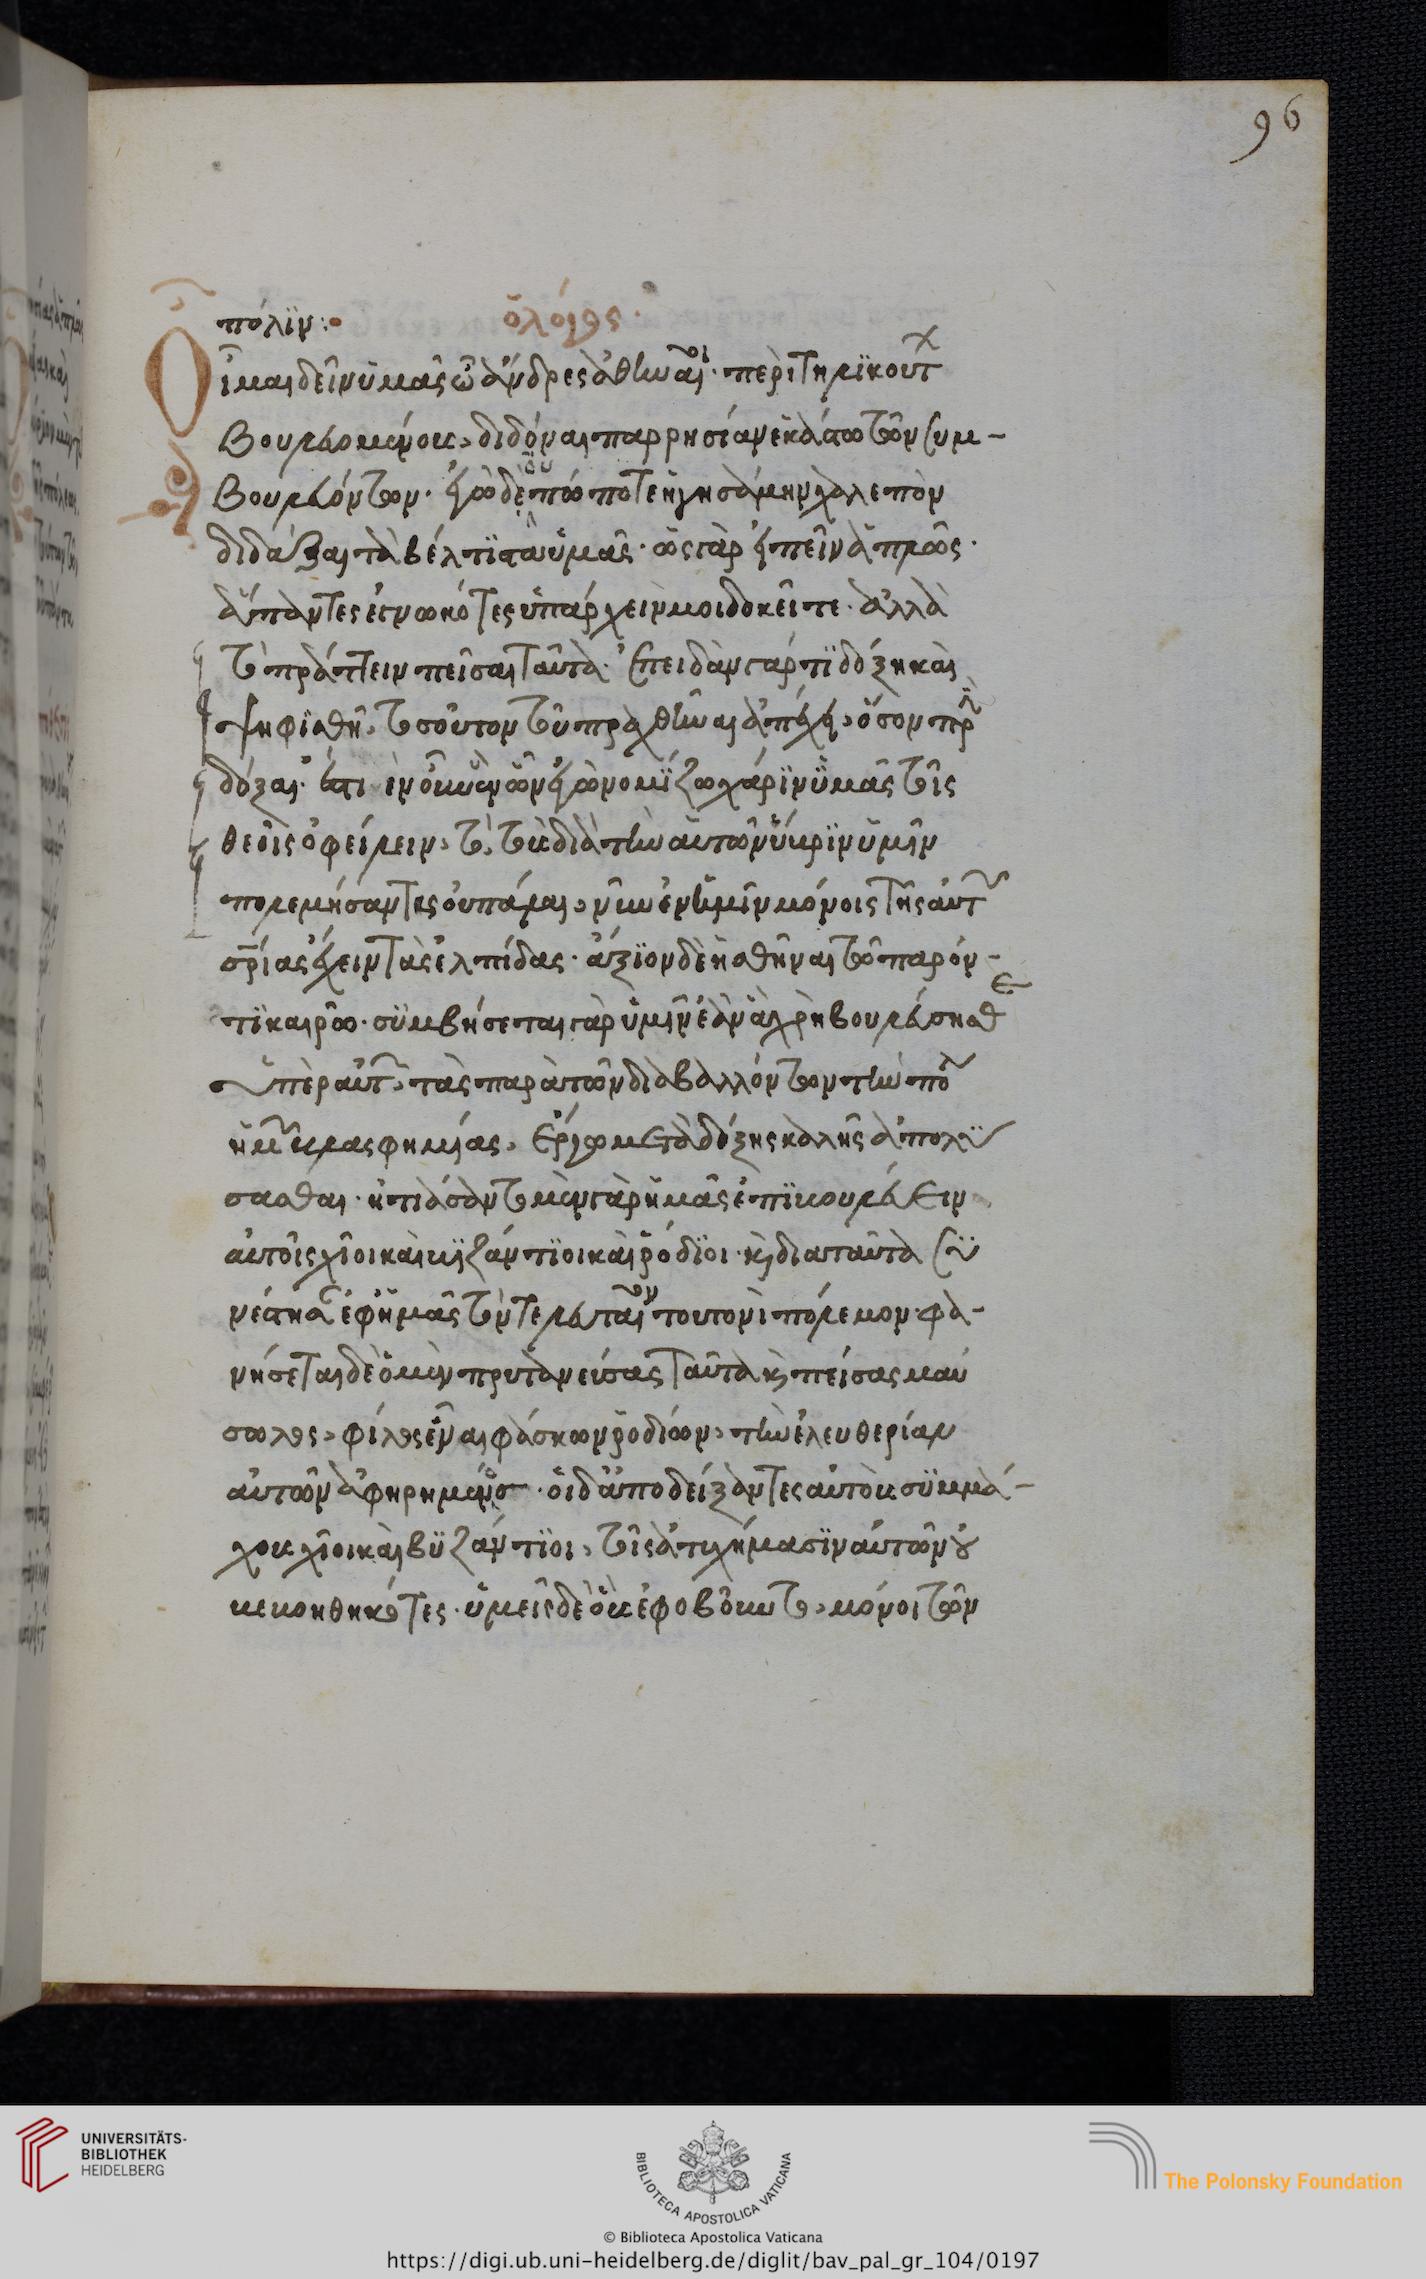 96
πόλιν:· ὁ λόγος·
Οἶμαι δεῖν ὑμᾶς ὦ ἄνδρες ἀθηναῖοι· περὶ τηλικούτων
βουλευομένους, διδόναι παρρησίαν ἑκάστω τῶν συμ-
βουλευόντων· ἐγὼ δὲ οὐ πώποτε ἡγησάμην χαλεπὸν
διδάξαι τὰ βέλτιστα ὑμᾶς· ὡς γὰρ εἰπεῖν ἁπλῶς·
ἅπαντες ἐγνωκότες ὑπάρχειν μοι δοκεῖτε· ἀλλὰ
τὸ πράττειν πεῖσαι ταῦτα· ἐπειδὰν γάρ τι δόξη καὶ
ψηφισθῆ, τοσοῦτον τοῦ πραχθῆναι ἀπέχει, ὅσον πρὶν
δόξαι· ἔστι μὲν οὖν ἓν ὧν ἐγὼ νομίζω χάριν ὑμᾶς τοῖς
θεοῖς ὀφείλειν, τὸ, τοὺς διὰ τὴν αὑτῶν ὕβριν ὑμῖν
πολεμήσαντες οὐ πάλαι, νῦν ἐν ὑμῖν μόνοις τῆς αὑτῶν
σωτηρίας ἔχειν τὰς ἐλπίδας· ἄξιον δὲ ἡσθῆναι τῶ παρόν-
τι καιρῶ· συμβήσεται γὰρ ὑμῖν ἐὰν ἃ χρὴ βουλεύσησθε
ὑπὲρ αὐτοῦ, τὰς παρὰ τῶν διαβαλλόντων τὴν πόλιν
ἡμῶν βλασφημίας, ἔργω μετὰ δόξης καλῆς ἀπολύ
σασθαι· ἠτιάσαντο μὲν γὰρ ἡμᾶς ἐπιβουλεύειν
αὐτοῖς χῖοι καὶ βυζάντιοι καὶ ῥόδιοι· καὶ διὰ ταῦτα συ
νέστησαν ἐφ' ἡμᾶς τὸν τελευταῖον τουτονὶ πόλεμον· φα-
νήσεται δὲ ὁ μὲν πρυτανεύσας ταῦτα καὶ πείσας μαύ
σωλος, φίλος εἶναι φάσκων ῥοδίων, τὴν ἐλευθερίαν
αὐτῶν ἀφηρημένος· οἱ δ' ἀποδείξαντες αὐτοὺς συμμά-
χους χῖοι καὶ βυζάντιοι, τοῖς ἀτυχήμασιν αὐτῶν οὐ
βεβοηθηκότες· ὑμεῖς δὲ οὓς ἐφοβοῦντο, μόνοι τῶν
UNIVERSITÄTS-
BIBLIOTHEK
HEIDELBERG
BIBLIOTECA APOSTOLICA VATICANA
The Polonsky Foundation
© Biblioteca Apostolica Vaticana
https://digi.ub.uni-heidelberg.de/diglit/bav_pal_gr_104/0197